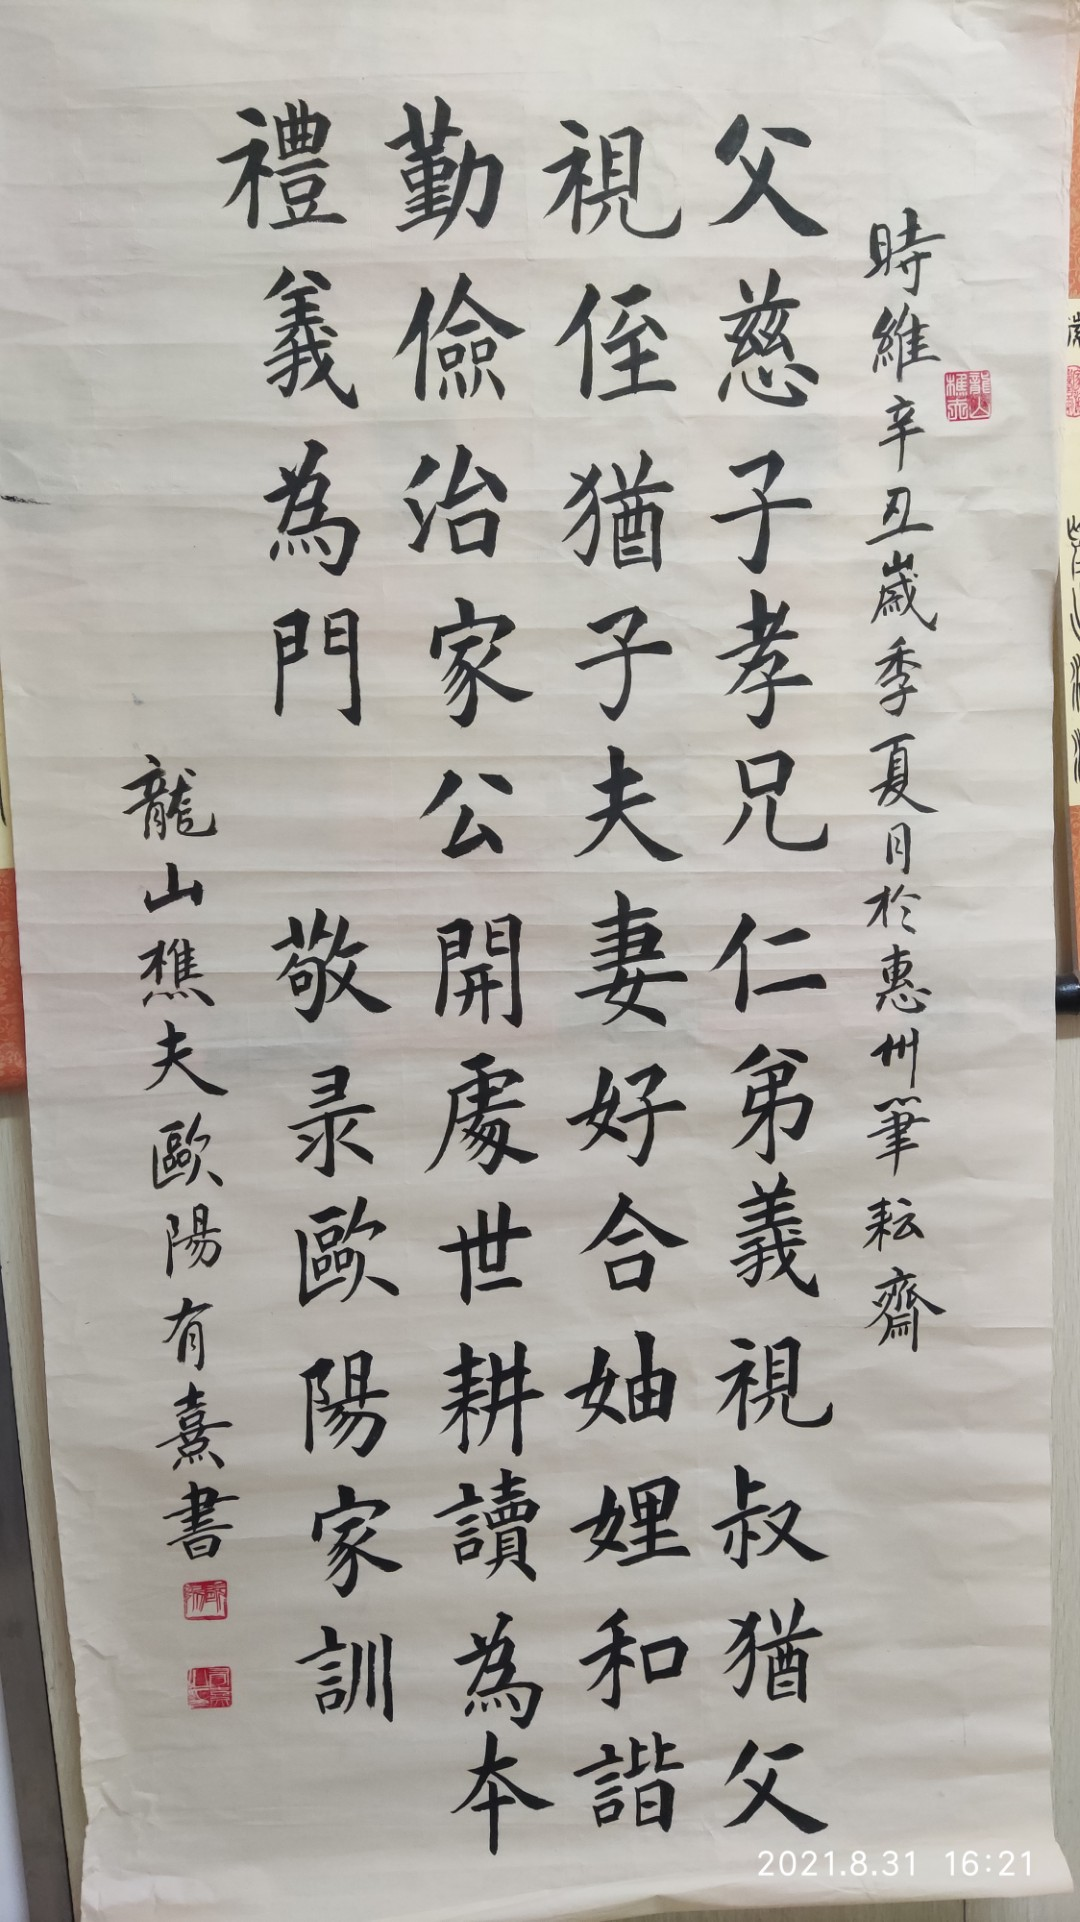 時維辛丑歲季夏月於惠州筆耘齋
父慈子孝兄仁弟義視叔猶父
視侄猶子夫妻好合妯娌和諧
勤儉治家公開處世耕讀為本
禮義為門 敬录歐陽家訓
龍山樵夫歐陽有熹書
2021.8.31 16:21